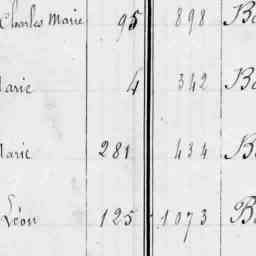 Charles Marie 95 898 B
Marie 4 342 B
Marie 281 434 B
Léon 125 1073 B